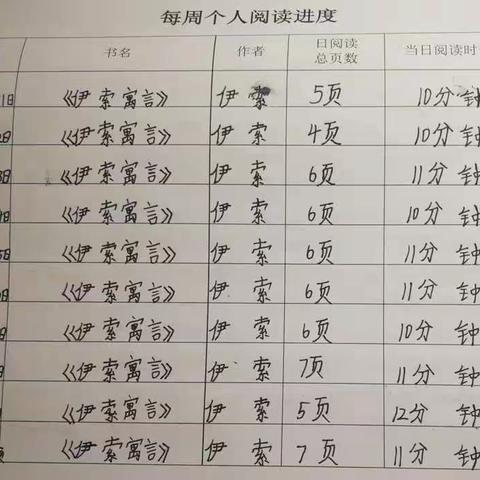 每周个人阅读进度
书名 作者 日阅读总页数 当日阅读时
1日 《伊索寓言》 伊索 5页 10分钟
日 《伊索寓言》 伊索 4页 10分钟
日 《伊索寓言》 伊索 6页 11分钟
日 《伊索寓言》 伊索 6页 10分钟
日 《伊索寓言》 伊索 6页 11分钟
日 《伊索寓言》 伊索 6页 11分钟
日 《伊索寓言》 伊索 6页 10分钟
日 《伊索寓言》 伊索 7页 11分钟
《伊索寓言》 伊索 5页 12分钟
《伊索寓言》 伊索 7页 11分钟